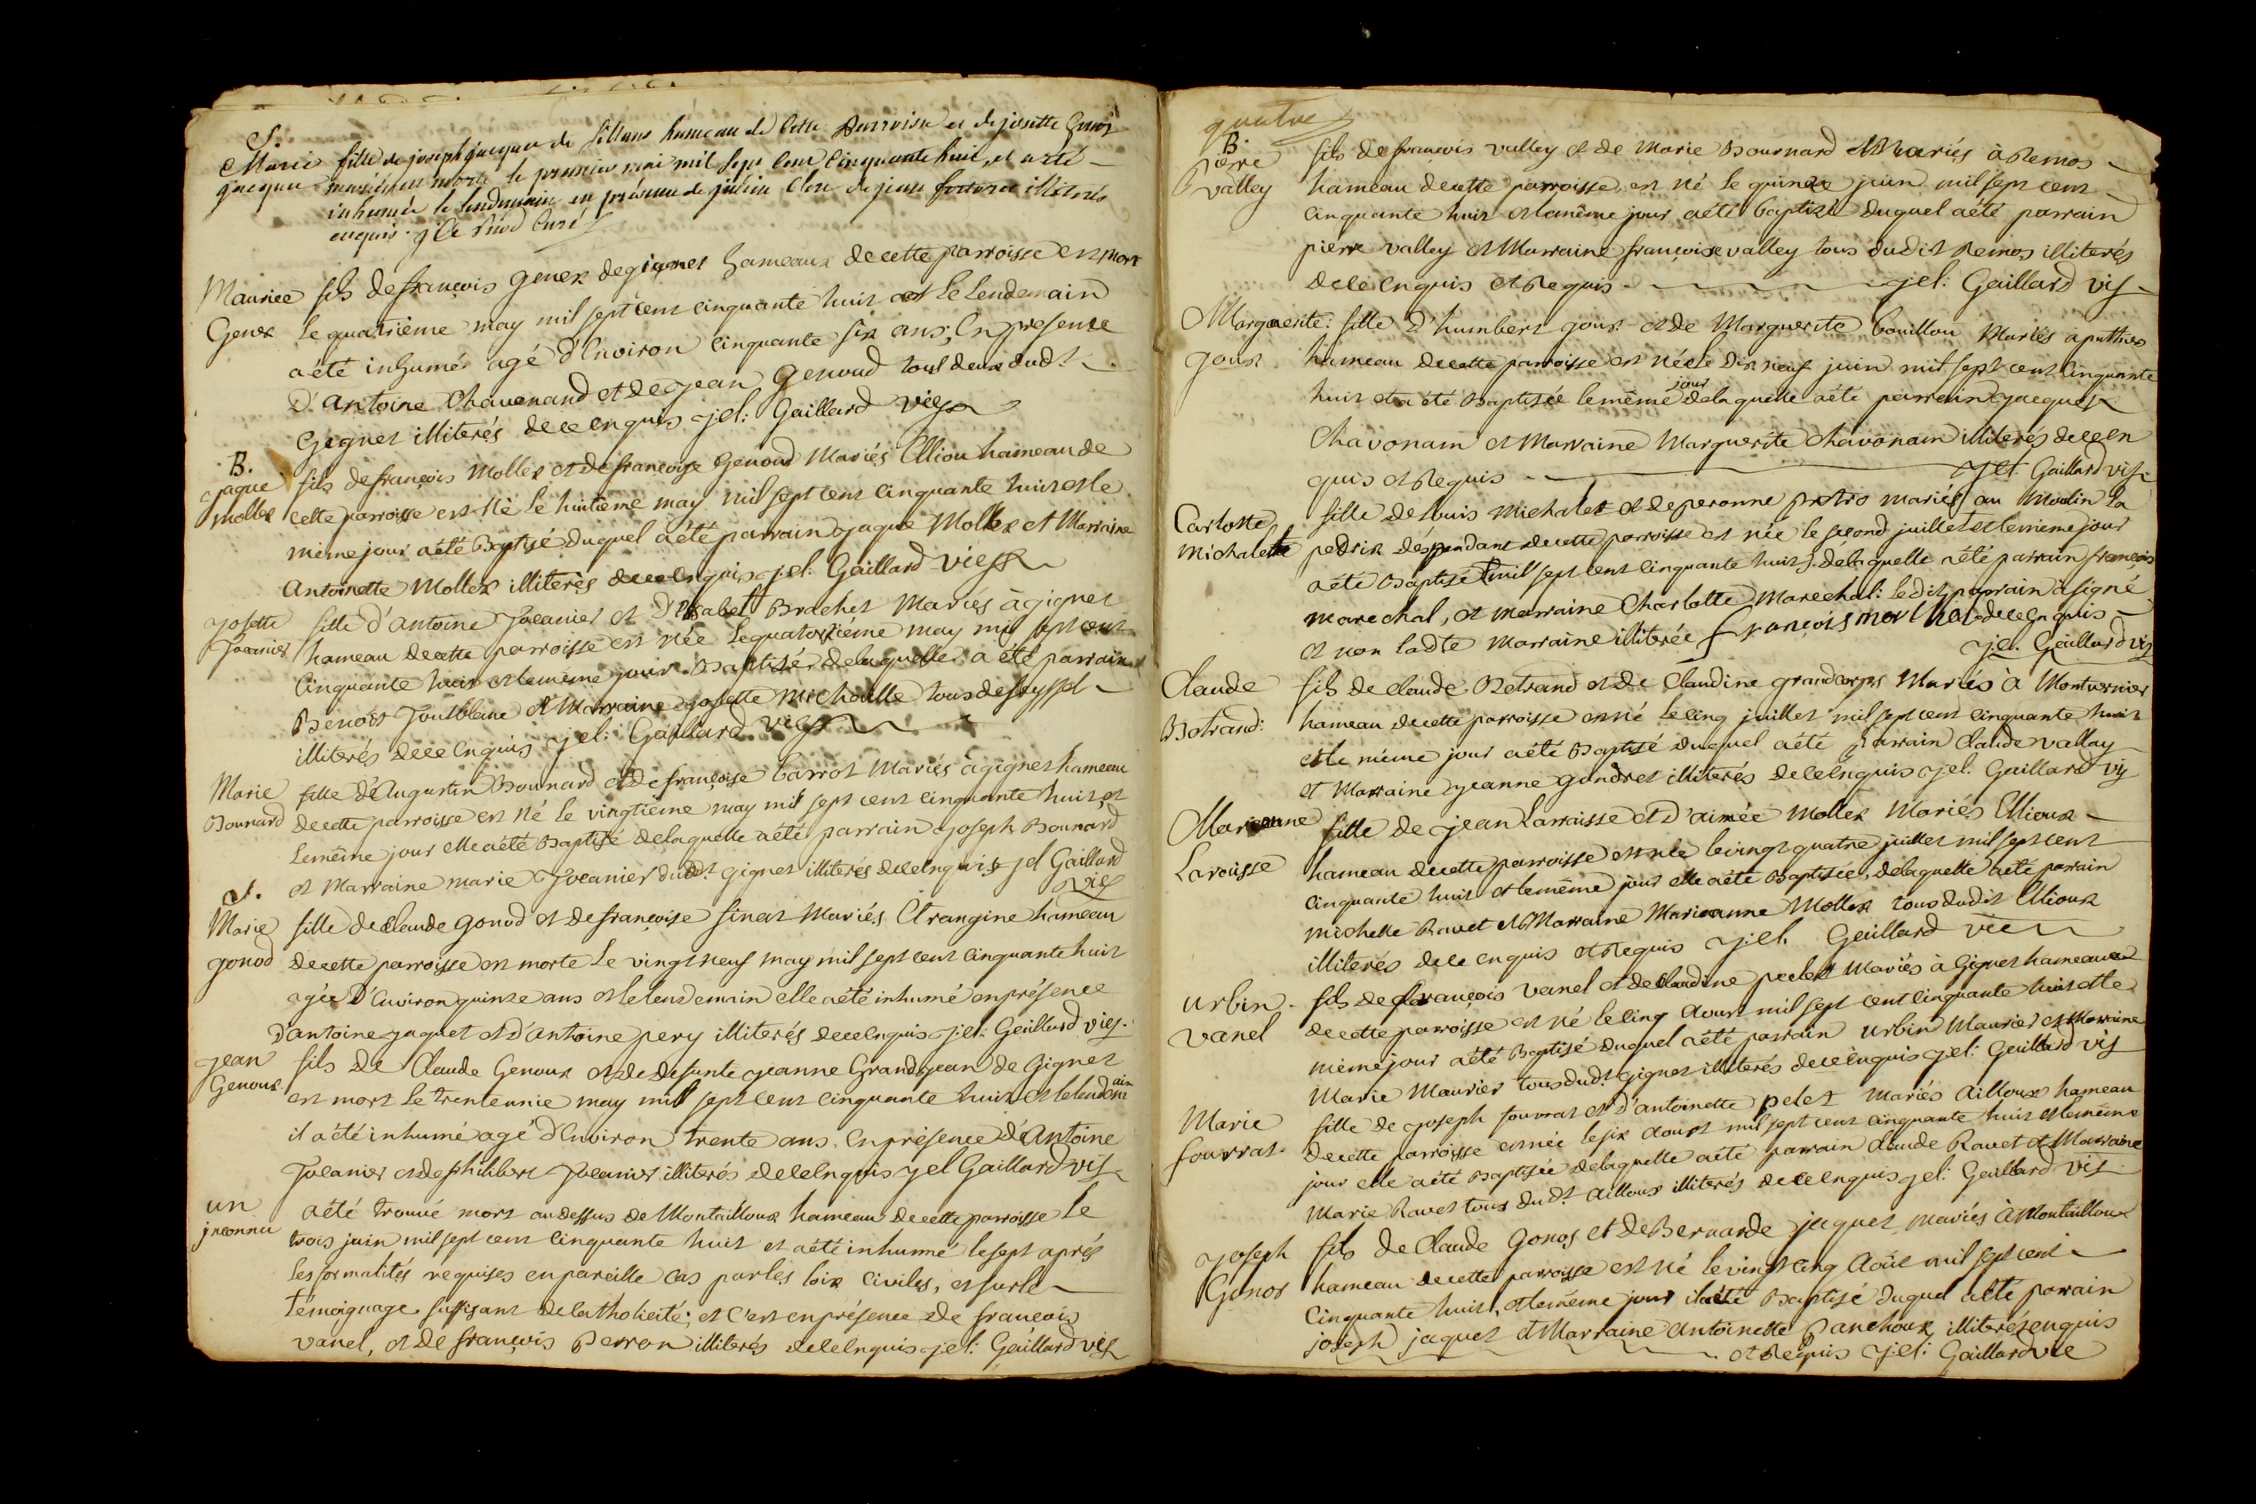 S.
Marie fille de joseph jacquer de hameau de cette parroisse et de josette
jacquer morte le premier mai mil sept cent cinquante huit, et a eté
inhumée le lendemain en présence de de jean illiterés
enquis. curé
Maurice fils de françois Genex de gignes hameaux de cette parroisse est mort
Genex le quatrième may mil sept cent cinquante huit et le Lendemain
a été inhumés agé d'Environ cinquante six ans, En présence
D'antoine Chavonand et de jean Genoud tout deux dud.t
Gignes illiterés de ce enquis jel: Gaillard vies
B.
jaque fils de françois Mollex et de francoise Genoud Mariés Elliou hameau de
mollex cette parroisse est Né le huitième may mil sept cent cinquante huit et le
même jour a été Baptisé duquel a été parrain jaque Mollex et Marraine
Antoinette Mollex illiterés de ce enquis jel: Gaillard vies
josette fille d'antoine Jocanier et D' Brachet Mariés à gignet
Jocanier hameau de cette parroisse est née le quatorzième may mil sept cent
Cinquante huit et le même jour Baptisé de laquelle a été parrain
Benoit et Marraine josette tous de Seyssel
illiterés de ce enquis jel: Gaillard vies
Marie fille d'Augustin Bournard et de françoise barrot Mariés à gignet hameau
Bournard de cette parroisse est Né le vingtième may mil sept cent cinquante huit et
Le même jour elle a été Baptisé de laquelle a été parrain joseph Bournard
et Marraine marie Jocanier dud.t gignet illiterés de ce enquis jel Gaillard
vies
S.
Marie fille de Claude gonod et de françoise finat Mariés Etrangine hameau
gonod de cette parroisse est morte Le vingt neuf may mil sept cent cinquante huit
agée d'Environ quinze ans et le lendemain elle a été inhumé en présence
d'antoine jaquet et d'antoine pery illiterés de ce enquis jel: Gaillard vies.
jean fils De Claude Genoux et de defunte jeanne Grandjean de Gignet
Genoux est mort Le trenteunie may mil sept cent cinquante huit et le lendemain
il a été inhumé agé d'Environ trente ans. en présence d'Antoine
Jocanier et de philibert Jocanier illiterés de ce enquis jel Gaillard vis
un a été trouvé mort au dessus de Montailloux hameau de cette parroisse le
jnconnu trois juin mil sept cent cinquante huit et a été inhumé le sept aprés
les formalités requises en pareille cas par les loix civiles, et sur le
témoignage suffisant de Catholicité; et c'est en présence de francois
vanel, et de françois Perron illiterés de ce enquis jel: Gaillard vis
quatre
B.
Pierre fils de francois valley et de Marie Bournard Mariés à Remos
valley hameau de cette parroisse, est né le quinze juin mil sept cent
cinquante huit et le même jour a été baptisé duquel a été parrain
pierre valley et Marraine françoise valley tous dudit Remos illiterés
de ce enquis et Requis. jel: Gaillard vis
Marguerite: fille d'humbert goux et de Marguerite bouillou Mariés a
goux hameau de cette parroisse est née le dix neuf juin mil sept cent cinquante
huit et a été Baptisée le même jour de laquelle a été parrain jacques
Chavonain et Marraine Marguerite Chavonain illiterés de ce en
quis et Requis jel. Gaillard vis
Carlotte fille de louis Michalet et de peronne mariés au Moulin La
Michalette pedrix despendant de cette parroisse est née le second juillet et le même jour
a été Baptisé (mil sept cent cinquante huit) de laquelle a été parrain francois
marechal, et marraine Charlotte Marechal: ledit parrain a signé
et non ladte marraine illiterée françois marechal de ce enquis
jel. Gaillard vis
Claude fils de claude Botrand et de Claudine grandcorps Mariés à Montvernier
Botrand: hameau de cette parroisse est né le cinq juillet mil sept cent cinquante huit
et le même jour a été Baptisé duquel a été parrain Claude vallay
et Marraine jeanne gondret illiterés de ce enquis jel. Gaillard vis
Marieanne fille de jean Laraisse et d'aimée Mollex Mariés Ellioux
Laroisse hameau de cette parroisse est née le vingt quatre juillet mil sept cent
cinquante huit et le même jour elle a été Baptisée, de laquelle a été parrain
michelle Ravet et Marraine Marieanne Mollex tous dudit Ellioux
illiterés de ce enquis et Requis jel. Gaillard vie
urbin. fils de françois vanel et de Claudine Mariés à Gignet hameaux
vanel de cette parroisse est né le cinq doust mil sept cent cinquante huit et le
même jour a été Baptisé duquel a été parrain urbin Maurier et Marraine
Marie Maurier tous dud.t gignet illiterés de ce enquis jel: Gaillard vis
Marie fille de joseph fourrat et d'antoinette pelet Mariés ailloux hameau
fourrat. de cette parroisse est née le six doust mil sept cent cinquante huit et le même
jour elle a été Baptisée de laquelle a été parrain claude Ravet et Marraine
Marie Ravet tous dud.t ailloux illiterés de ce enquis jel: Gaillard vis
joseph fils de Claude Gonos et de Bernarde jaquet mariés à Montailloux
Gonos hameau de cette parroisse est né le vingt cinq Août mil sept cent
cinquante huit, et le même jour il a été Baptisé duquel a été parrain
joseph jaquet et Marraine antoinette Panchoux illiterés enquis
et Requis jel: Gaillard vie